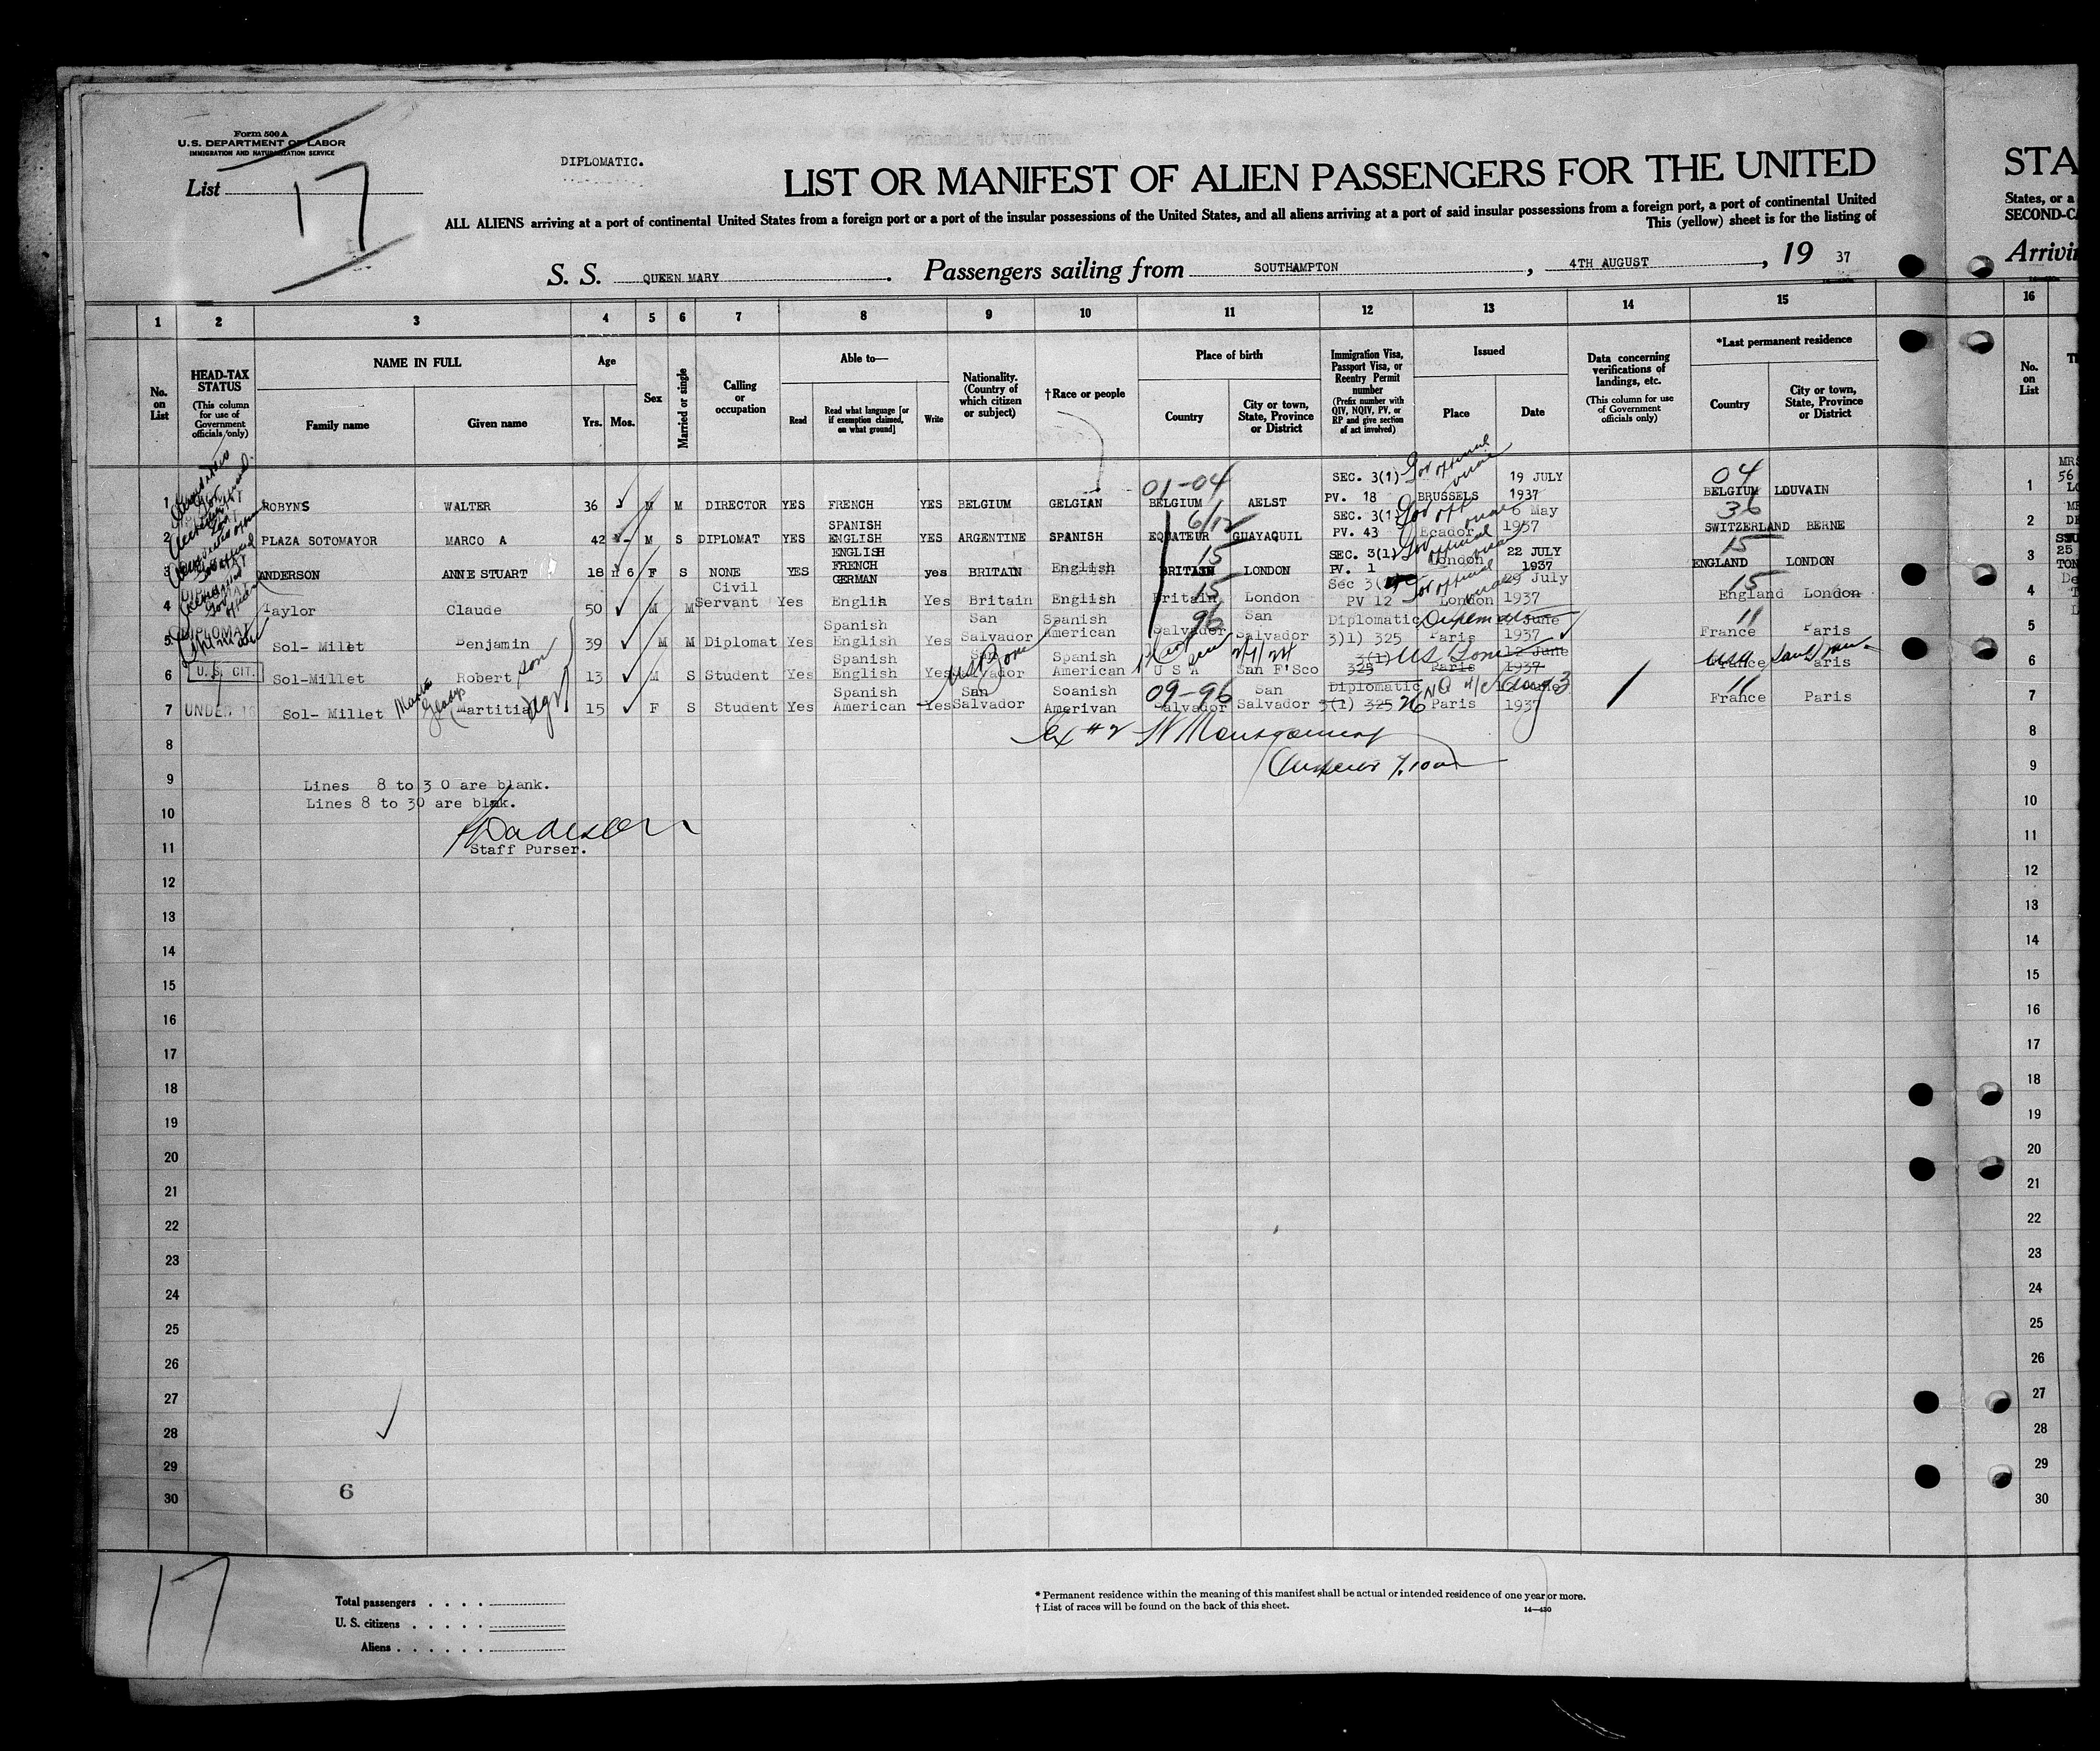 Form 500 A
U.S. DEPARTMENT OF LABOR
IMMIGRATION AND NATURALIZATION SERVICE
List 17
DIPLOMATIC.
LIST OR MANIFEST OF ALIEN PASSENGERS FOR THE UNITED
STA
ALL ALIENS arriving at a port of continental United States from a foreign port or a port of the insular possessions of the United States, and all aliens arriving at a port of said insular possessions from a foreign port, a port of continental United
States, or a
This (yellow) sheet is for the listing of
SECOND-CA
S. S. QUEEN MARY. Passengers sailing from SOUTHAMPTON, 4TH AUGUST, 19 37
Arrivin
1 2 3 4 5 6 7 8 9 10 11 12 13 14 15 16
No. on List
HEAD-TAX STATUS (This column for use of Government officials only)
NAME IN FULL
Family name
Given name
Age
Yrs. Mos.
Sex
Married or single
Calling or occupation
Able to—
Read
Read what language [or if exemption claimed, on what ground]
Write
Nationality. (Country of which citizen or subject)
†Race or people
Place of birth
Country
City or town, State, Province or District
Immigration Visa, Passport Visa, or Reentry Permit number (Prefix number with QIV, NQIV, PV, or RP and give section of act involved)
Issued
Place
Date
Data concerning verifications of landings, etc. (This column for use of Government officials only)
*Last permanent residence
Country
City or town, State, Province or District
No. on List
1 ROBYNS WALTER 36 M M DIRECTOR YES FRENCH YES BELGIUM GELGIAN 01-04 BELGIUM AELST SEC. 3(1) PV. 18 BRUSSELS 19 JULY 1937 04 BELGIUM LOUVAIN 1
2 PLAZA SOTOMAYOR MARCO A 42 M S DIPLOMAT YES SPANISH ENGLISH YES ARGENTINE SPANISH 6/12 EQUATEUR GUAYAQUIL SEC. 3(1) PV. 43 Ecador 6 May 1937 36 SWITZERLAND BERNE 2
3 ANDERSON ANNE STUART 18 6 F S NONE YES ENGLISH FRENCH GERMAN yes BRITAIN English 15 BRITAIN LONDON SEC. 3(1) PV. 1 London 22 JULY 1937 15 ENGLAND LONDON 3
4 Taylor Claude 50 M M Civil Servant Yes Englih Yes Britain English 15 Britain London Sec 3( PV 12 London 29 July 1937 15 England London 4
5 DIPLOMAT Sol- Millet Benjamin 39 M M Diplomat Yes Spanish English Yes San Salvador Spanish American 96 Salvador San Salvador Diplomatic 3)1) 325 Paris June 1937 11 France Paris 5
6 U.S. CIT. Sol-Millet Robert son 13 M S Student Yes Spanish English Yes San Salvador Spanish American U S A San F'Sco 3(1) 325 Paris 12 June 1937 USA France Paris 6
7 UNDER 16 Sol- Millet Martitia 15 F S Student Yes Spanish American Yes San Salvador Soanish Amerivan 09-96 Salvador San Salvador Diplomatic 3(1) 325 26 Paris 1937 11 France Paris 7
8 8
9 9
Lines 8 to 3 0 are blank.
Lines 8 to 30 are blak.
10 10
11 Staff Purser. 11
12 12
13 13
14 14
15 15
16 16
17 17
18 18
19 19
20 20
21 21
22 22
23 23
24 24
25 25
26 26
27 27
28 28
29 29
30 6 30
17
Total passengers
U. S. citizens
Aliens
* Permanent residence within the meaning of this manifest shall be actual or intended residence of one year or more.
† List of races will be found on the back of this sheet.
14—430